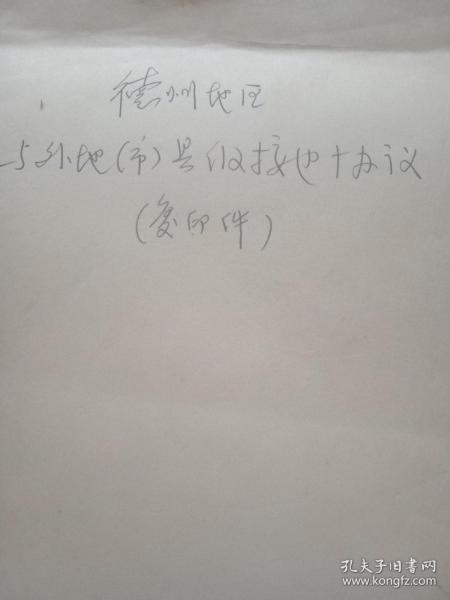 德州地区
与外地(市)县级接地协议
(复印件)
孔夫子旧书网
www.kongfz.com